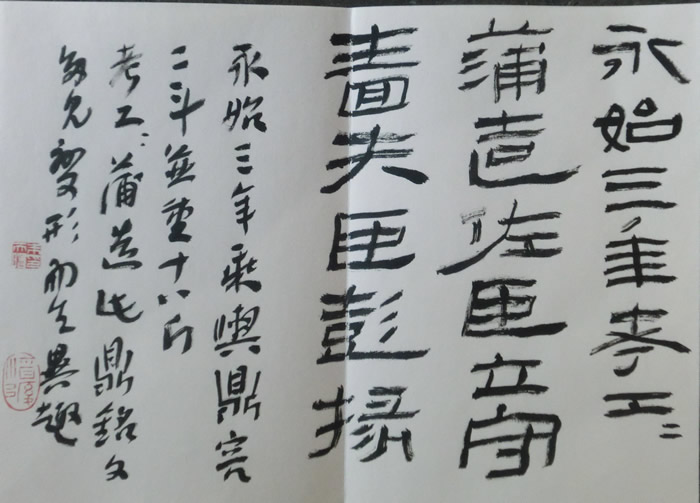 永始三年考工〻
蒲造佐臣立守
嗇夫臣彭掾
永始三年乘輿鼎容
二斗並重十八斤
考工〻蒲造此鼎銘文
變形而生異趣